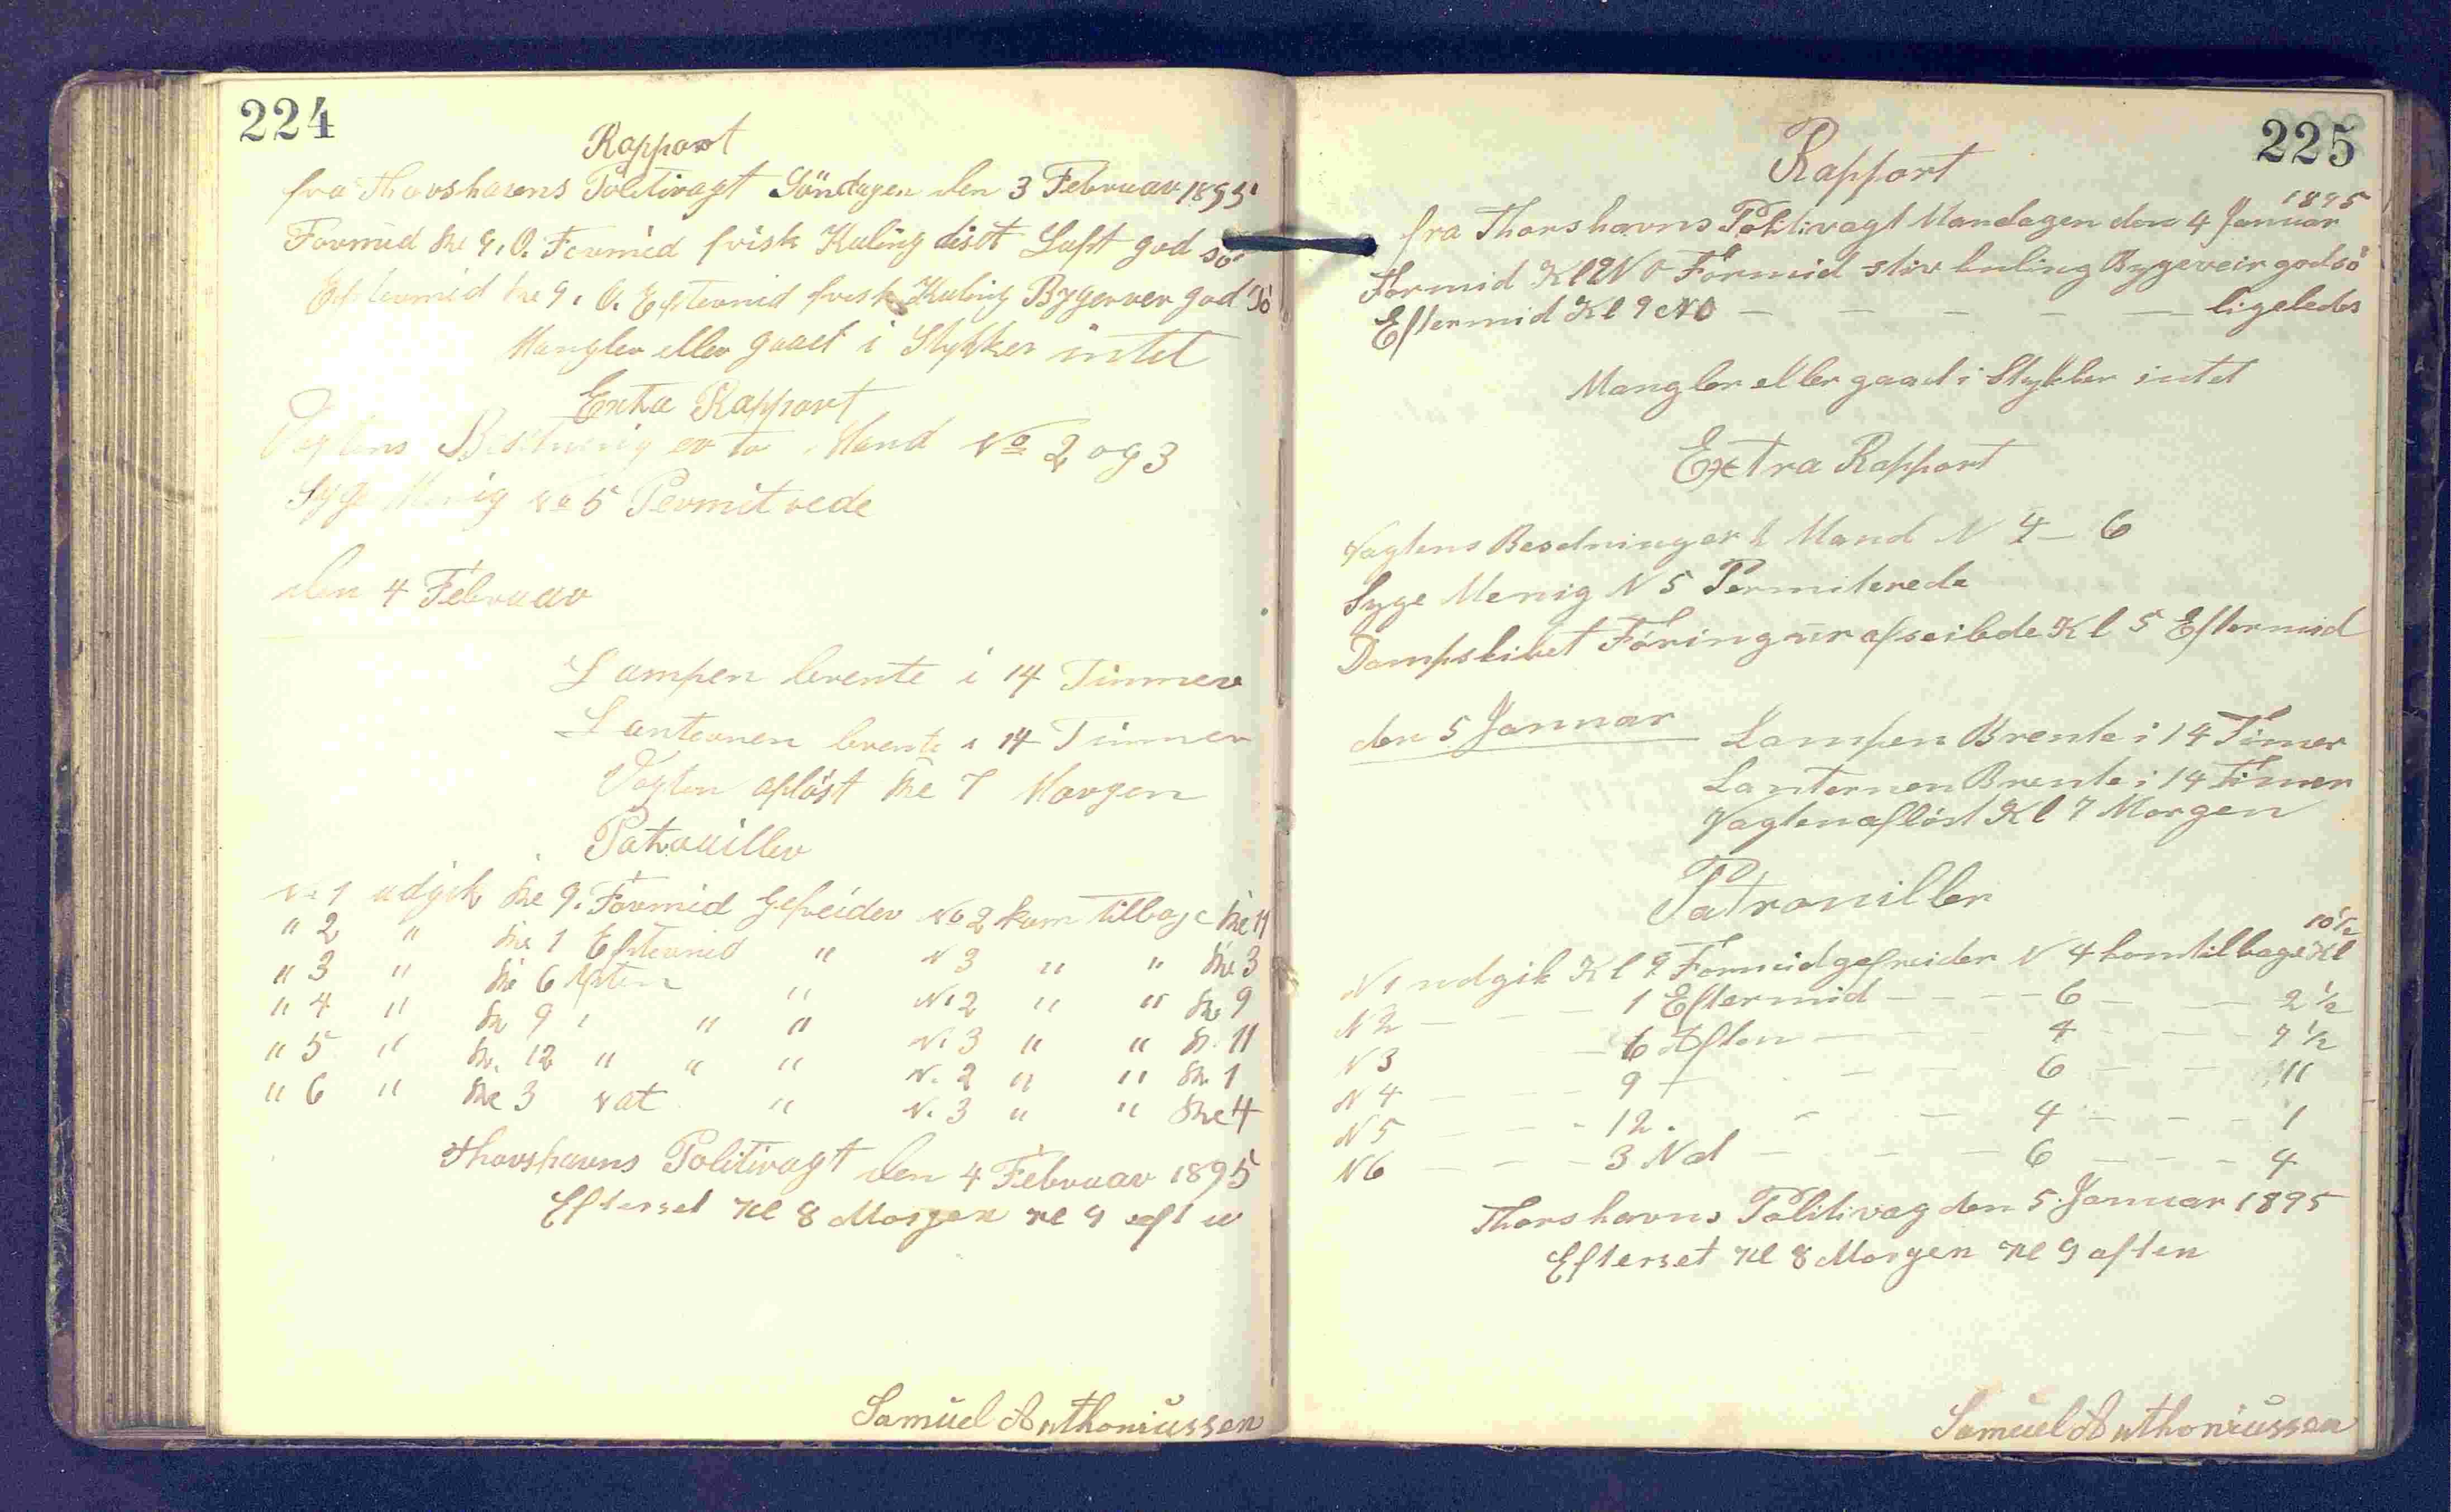 224
Rapport
fra Thorshavns Politivagt Söndagen den 3 Februar 1895
Formid Kl 9. O. Formid frisk Kuling diset Luft god sö
Eftermid Kl 9. O. Eftermid frisk Kuling Bygerver god Sö
Mangler eller gaaet i Stykker intet
Exta Rapport
Vagtens Besetning er to Mand No 2 og 3
Syge Menig No 5 Permitrede
den 4 Februar
Lampen brente i 14 Timmer
Lanternen brente i 14 Timmer
Vagten aflöst Kl 7 Morgen
Patrouiller
No 1 udgik Kl 9. Formid Gefreider No 2 kom tilbage Kl 11
" 2 " Kl 1 Eftermid " N 3 " " Kl 3
" 3 " Kl 6 Aften " No 2 " " Kl 9
" 4 " Kl 9 " " " No 3 " " Kl. 11
" 5 " Kl. 12 " " " N. 2 " " Kl. 1
" 6 " Kl 3 Nat " N. 3 " " Kl 4
Thorshavns Politivagt den 4 Februar 1895
Efterset Kl 8 Morgen Kl 9
Samuel Anthoniussen
225
Rapport
1895
fra Thorshavns Politivagt Mandagen den 4 Januar
Formid Kl 9 NO Formid stiv kuling Bygeveir god sö
Eftermid Kl 9 NO — — — — — ligeledes
Mangler eller gaaet i Stykker intet
Extra Rapport
Vagtens Besedning er 2 Mand N 4 – 6
Syge Menig N 5 Permiterede
Dampskibet Föringur afseilede Kl 5 Eftermid
den 5 Januar
Lampen Brente i 14 Timer
Lanternen Brente i 14 Timer
Vagten aflöst Kl 7 Morgen
Patrouiller
10½
N 1 udgik Kl 9 Formid gefreider N 4 kom tilbage Kl
N 2 — — — 1 Eftermid — — — 6 — — 2 ½
N 3 — 6 Aften — 4 — — 7 ½
N 4 — — — 9 — — — 6 — — 11
N 5 — — — 12. — — 4 — — — 1
N 6 — — — 3 Nat — — — 6 — — — 4
Thorshavns Politivag den 5. Januar 1895
Efterset Kl 8 Morgen Kl 9 aften
Samuel Anthoniussen